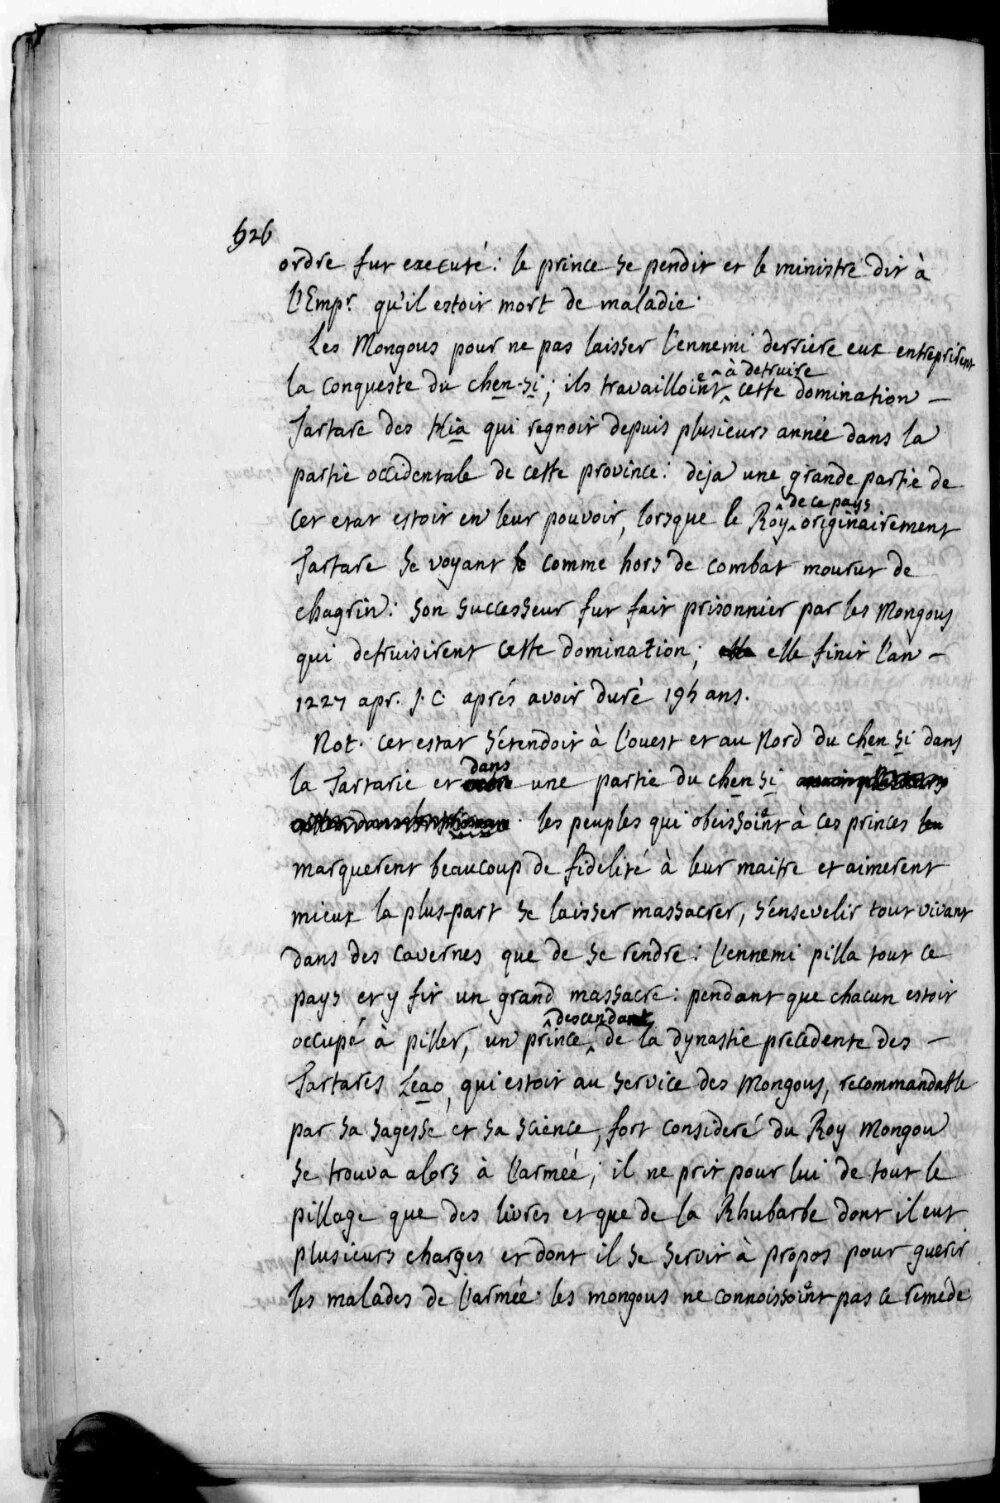 626
ordre fut executé: le prince se pendit et le ministre dit à
l'Empr. qu'il estoit mort de maladie.
Les Mongous pour ne pas laisser l'ennemi derriere eux entreprirent
la conqueste du chen-si; ils travailloient à detruire cette domination
Tartare des hia qui regnoit depuis plusieurs année dans la
partie occidentale de cette province: deja une grande partie de
cet etat estoit en leur pouvoir, lorsque le Roy de ce pays originairement
Tartare se voyant comme hors de combat mourut de
chagrin: son successeur fut fait prisonnier par les Mongous
qui detruisirent cette domination; elle finit l'an
1227 apr. J. C aprés avoir duré 195 ans.
Not. cet estat s'étendoit à l'ouest et au Nord du chen si dans
la Tartarie et dans une partie du chen si
les peuples qui obeissoient à ces princes
marquerent beaucoup de fidelité à leur maitre et aimerent
mieux la plus-part se laisser massacrer, s'ensevelir tout vivant
dans des cavernes que de se rendre: l'ennemi pilla tout ce
pays et y fit un grand massacre: pendant que chacun estoit
occupé à piller, un prince descendant de la dynastie precedente des
Tartares Leao, qui estoit au service des Mongous, recommandable
par sa sagesse et sa science, fort consideré du Roy Mongou
se trouva alors à l'armée; il ne prit pour lui de tout le
pillage que des livres et que de la Rhubarbe dont il eut
plusieurs charges et dont il se servit à propos pour guerir
les malades de l'armée. les mongous ne connoissoient pas ce remede